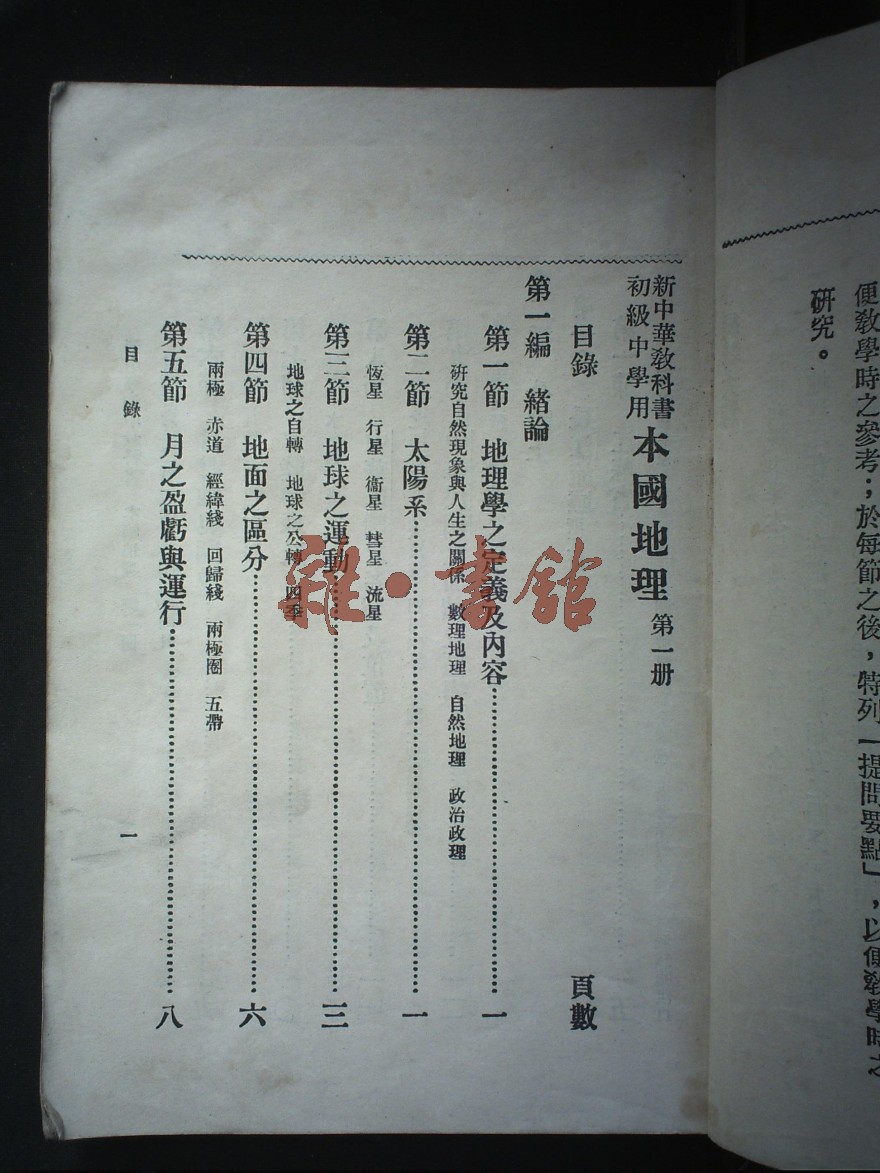 便教學時之參考；於每節之後，特列「提問要點」，以便教學時之
研究。
新中華教科書
初級中學用
本國地理 第一册
目錄 頁數
第一編 緒論
第一節 地理學之定義及內容 一
研究自然現象與人生之關係 數理地理 自然地理 政治政理
第二節 太陽系 一
恆星 行星 衞星 彗星 流星
第三節 地球之運動 三
地球之自轉 地球之公轉 四季
第四節 地面之區分 六
兩極 赤道 經緯綫 回歸綫 兩極圈 五帶
第五節 月之盈虧與運行 八
目錄 一
雜·書館